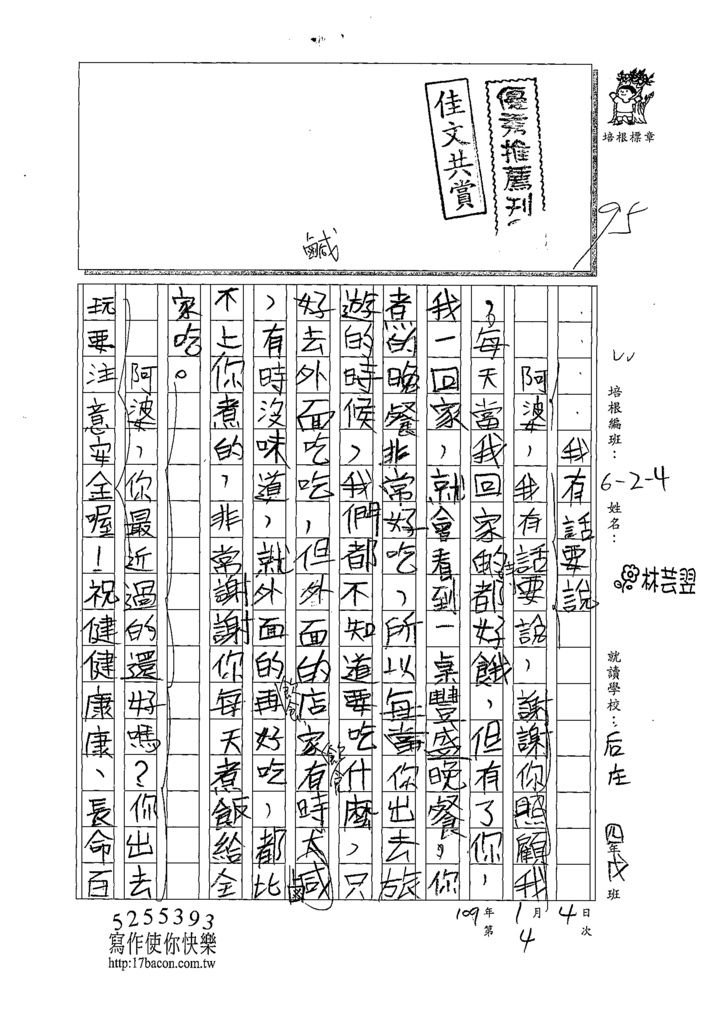 優秀推薦刊
佳文共賞
培根標章
95
鹹
培根編班：
6-2-4
姓名：
林芸翌
就讀學校：
后庄
四年戊班
109年1月4日
第4次
我有話要說
阿婆，我有話要說，謝謝你照顧我
，每天當我回家的都好餓，但有了你，
我一回家，就會看到一桌豐盛晚餐，你
煮的晚餐非常好吃，所以每當你出去旅
遊的時候，我們都不知道要吃什麼，只
好去外面吃吃，但外面的店家有時太鹹
，有時沒味道，就外面的再好吃，都比
不上你煮的，非常謝謝你每天煮飯給全
家吃。
阿婆，你最近過的還好嗎？你出去
玩要注意安全喔！祝健健康康、長命百
5255393
寫作使你快樂
http:17bacon.com.tw